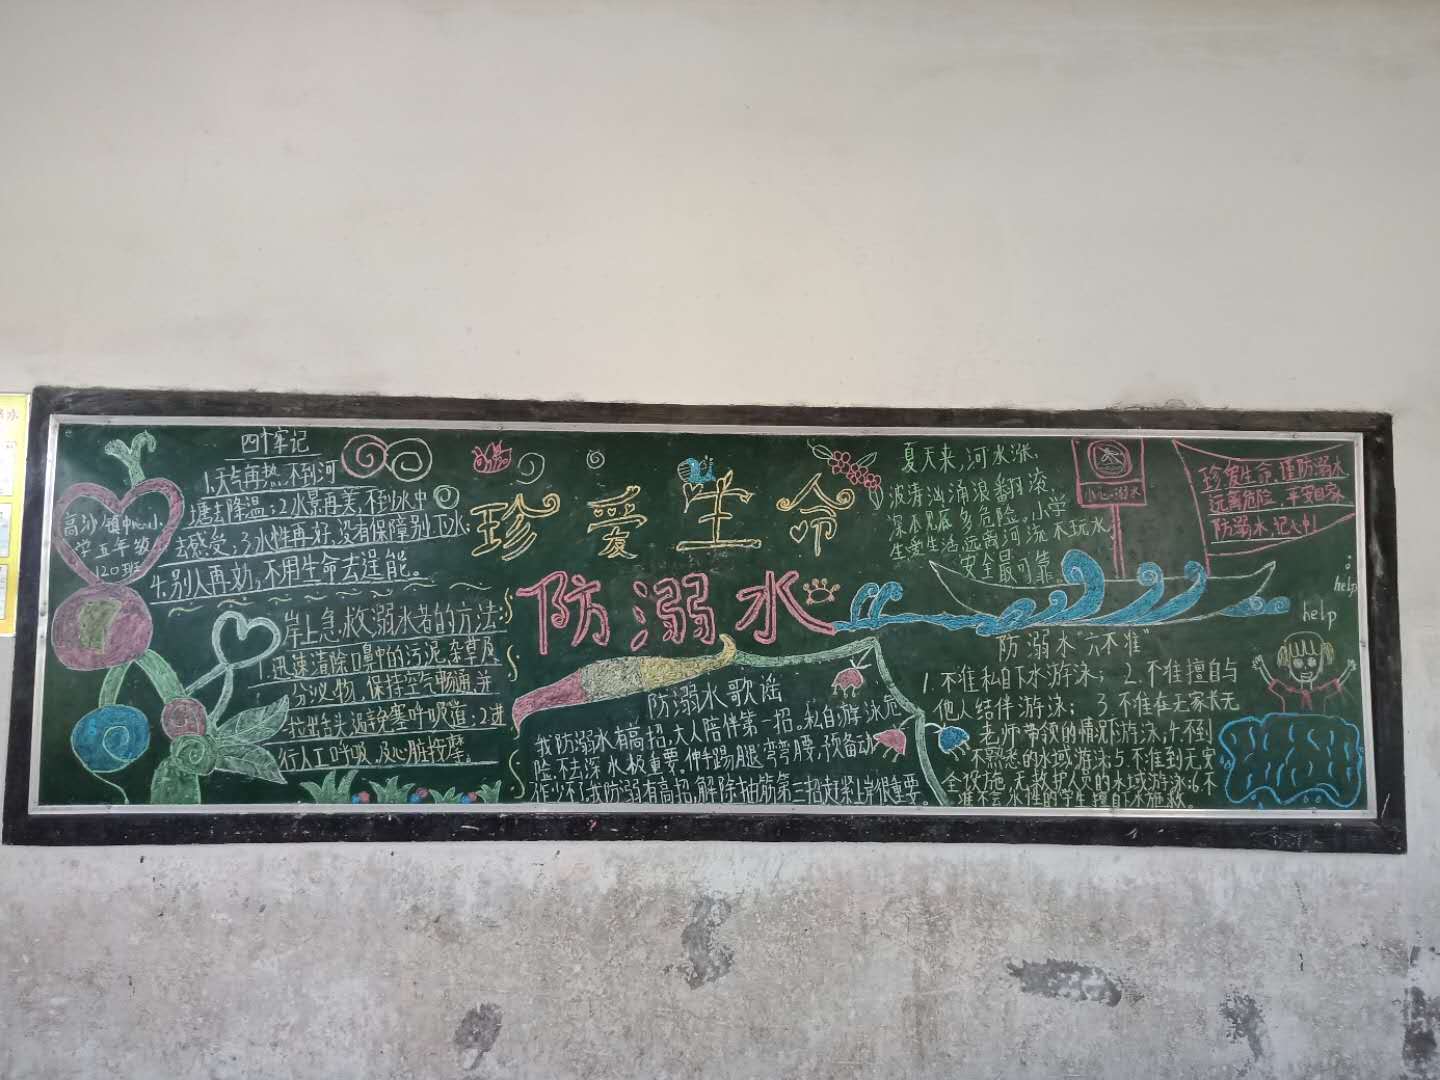 四个牢记
1.天气再热,不到河
塘去降温;2水景再美,不到水中
去感受;3水性再好,没有保障别下水;
4.别人再劝,不用生命去逞能。
高沙镇中心小
学五年级
120班
岸上急救溺水者的方法:
1.迅速清除口鼻中的污泥,杂草及
分泌物,保持空气畅通,并
拉出舌头,避免塞呼吸道;2进
行人工呼吸,及心脏按摩。
珍爱生命
防溺水
防溺水歌谣
我防溺水有高招,大人陪伴第一招。私自游泳危
险,不去深水极重要。伸手踢腿弯弯腰,预备动
作少不了,我防溺有高招,解除抽筋第三招,赶紧上岸很重要。
夏天来,河水涨,
波清汹涌浪翻滚,
深不见底多危险。小学
生爱生活,远离河流不玩水,
安全最可靠。
小心溺水
珍爱生命,谨防溺水
远离危险,平安回家
防溺水,记心中!
help
help
防溺水"六不准"
1.不准私自下水游泳;2.不准擅自与
他人结伴游泳;3.不准在无家长无
老师带领的情况下游泳,4.不到
不熟悉的水域游泳;5.不准到无安
全设施,无救护人员的水域游泳;6.不
准不会水性的学生擅自下水施救。